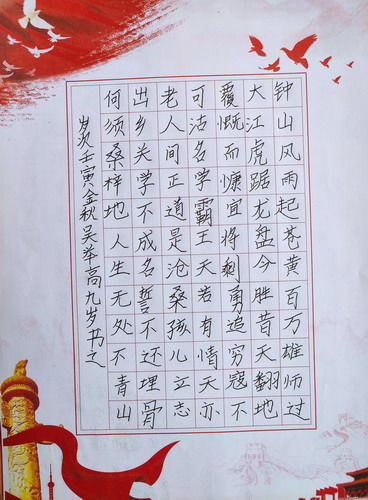 钟山风雨起苍黄百万雄师过
大江虎踞龙盘今胜昔天翻地
覆慨而慷宜将剩勇追穷寇不
可沽名学霸王天若有情天亦
老人间正道是沧桑孩儿立志
出乡关学不成名誓不还埋骨
何须桑梓地人生无处不青山
岁次壬寅金秋吴举高九岁书之